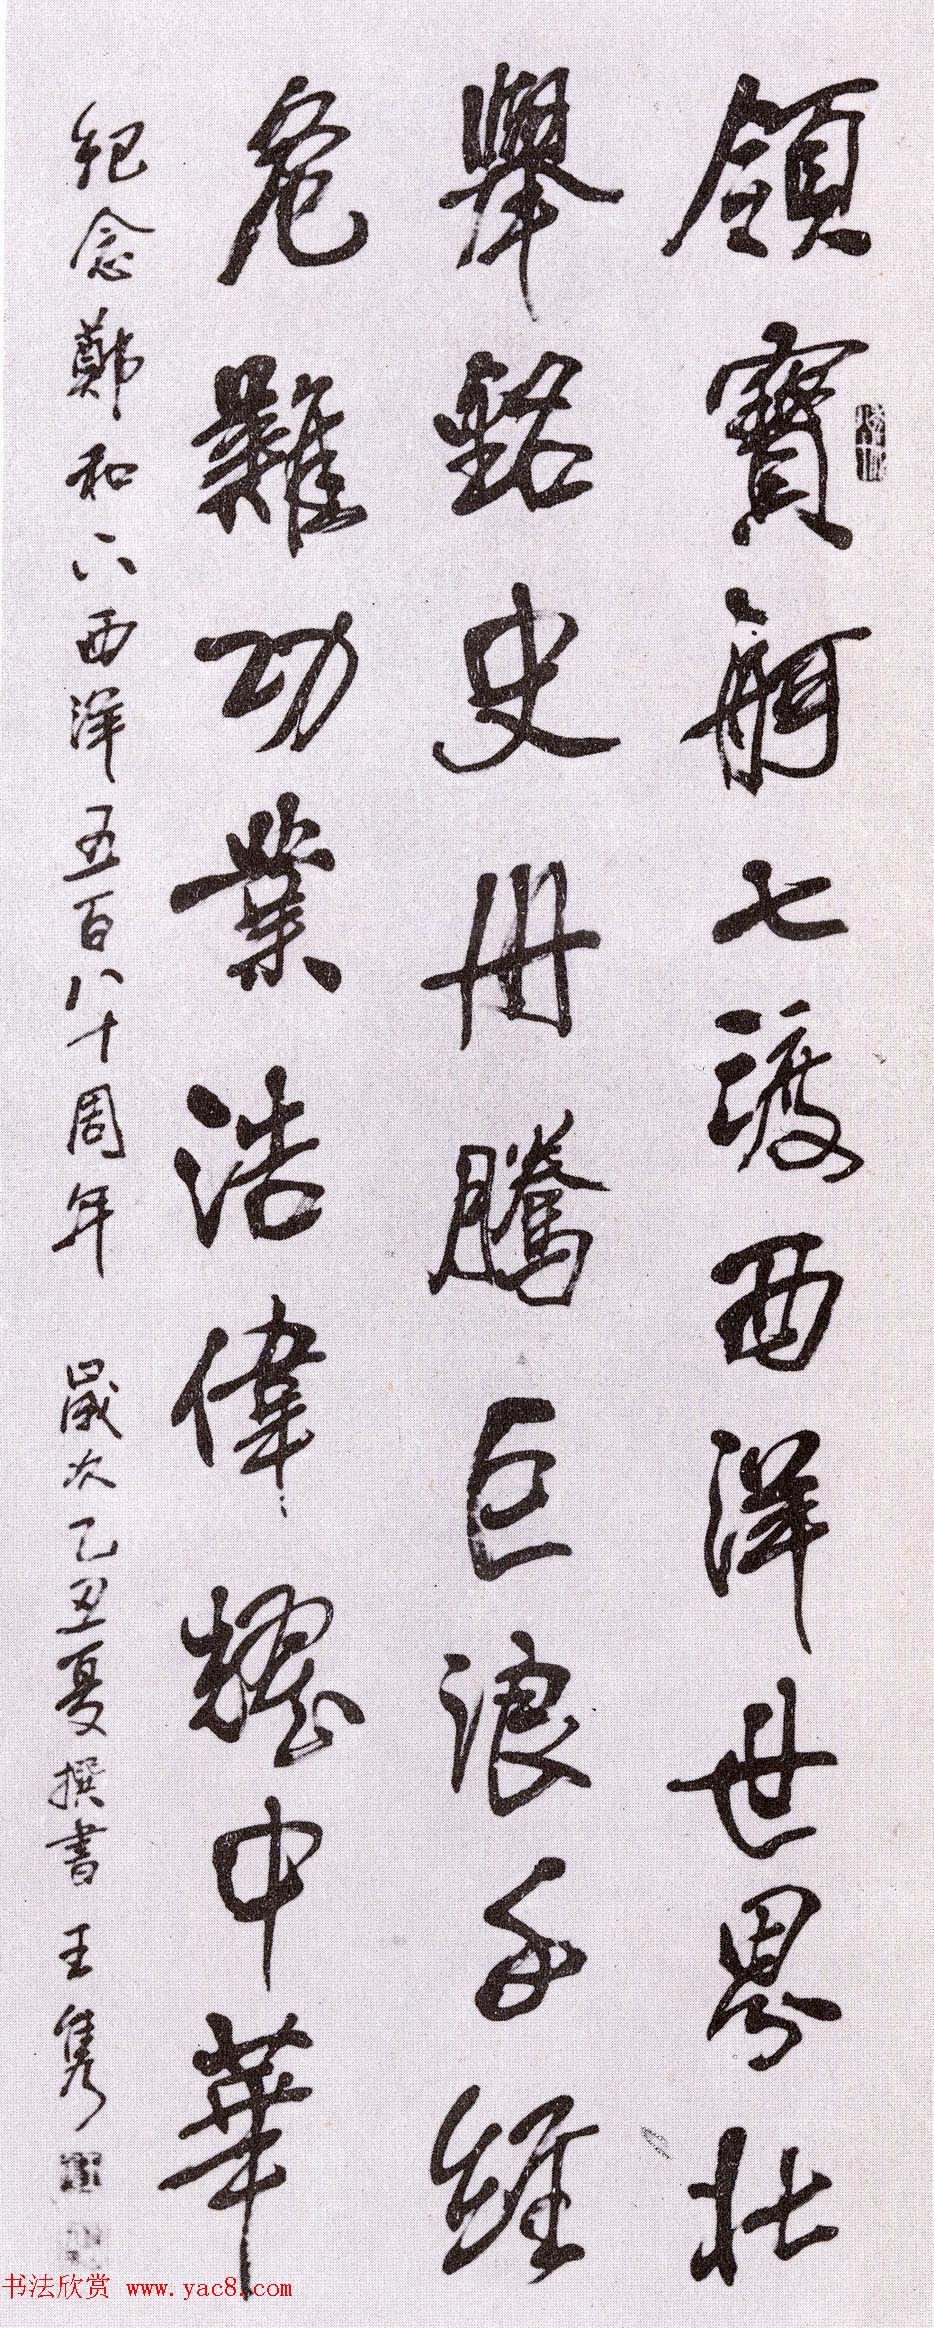 領寶舸七渡西洋世界壯
舉銘史册騰巨浪千維
危難功業浩偉耀中華
紀念鄭和下西洋五百八十周年 歲次乙丑夏撰書 王隽
书法欣赏 www.yac8.com